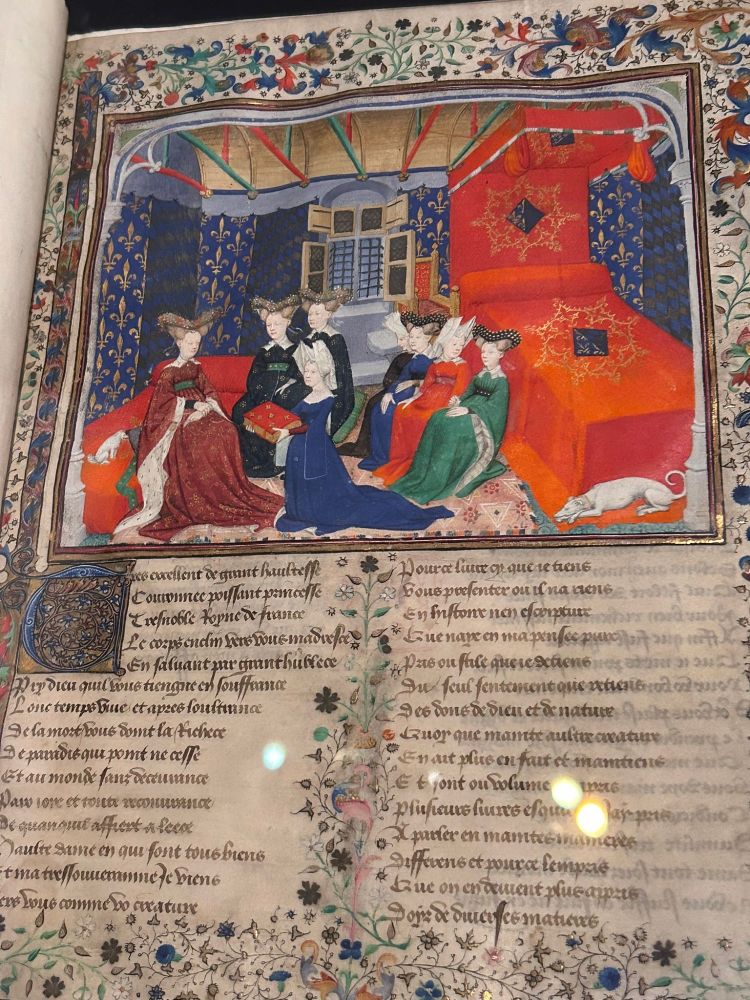 Tres excellent de grant haultesse
Couronnee poissant princesse
Tresnoble Royne de france
Le corps enclin vers vous madresce
En saluant par grant hũblece
Pry dieu quil vous tiengne en souffrance
Lonc temps viue et apres loultrance
De la mort vous doint la Richece
De paradis qui point ne cesse
Et au monde sans deceurance
Paix ioye et toute recouurance
De quanquil affiert a leece
Haulte dame en qui sont tous biens
Et ma tressouueraine Je viens
vers vous comme vo creature
Pour ce liure cy que ie tiens
Vous presenter ou il na riens
En histoire nen escripture
Que naye en ma pensee pure
Pris ou stile que ie detiens
Du seul sentement que retiens
Des dons de dieu et de nature
Quoy que mainte aultre creature
En ait plus en fait et maintiens
Et sont ou volume compris
plusieurs liures esquieulx ay pris
A parler en maintes manieres
Differens et pour ce lempris
Que on en deuient plus apris
Doyr de diuerses matieres